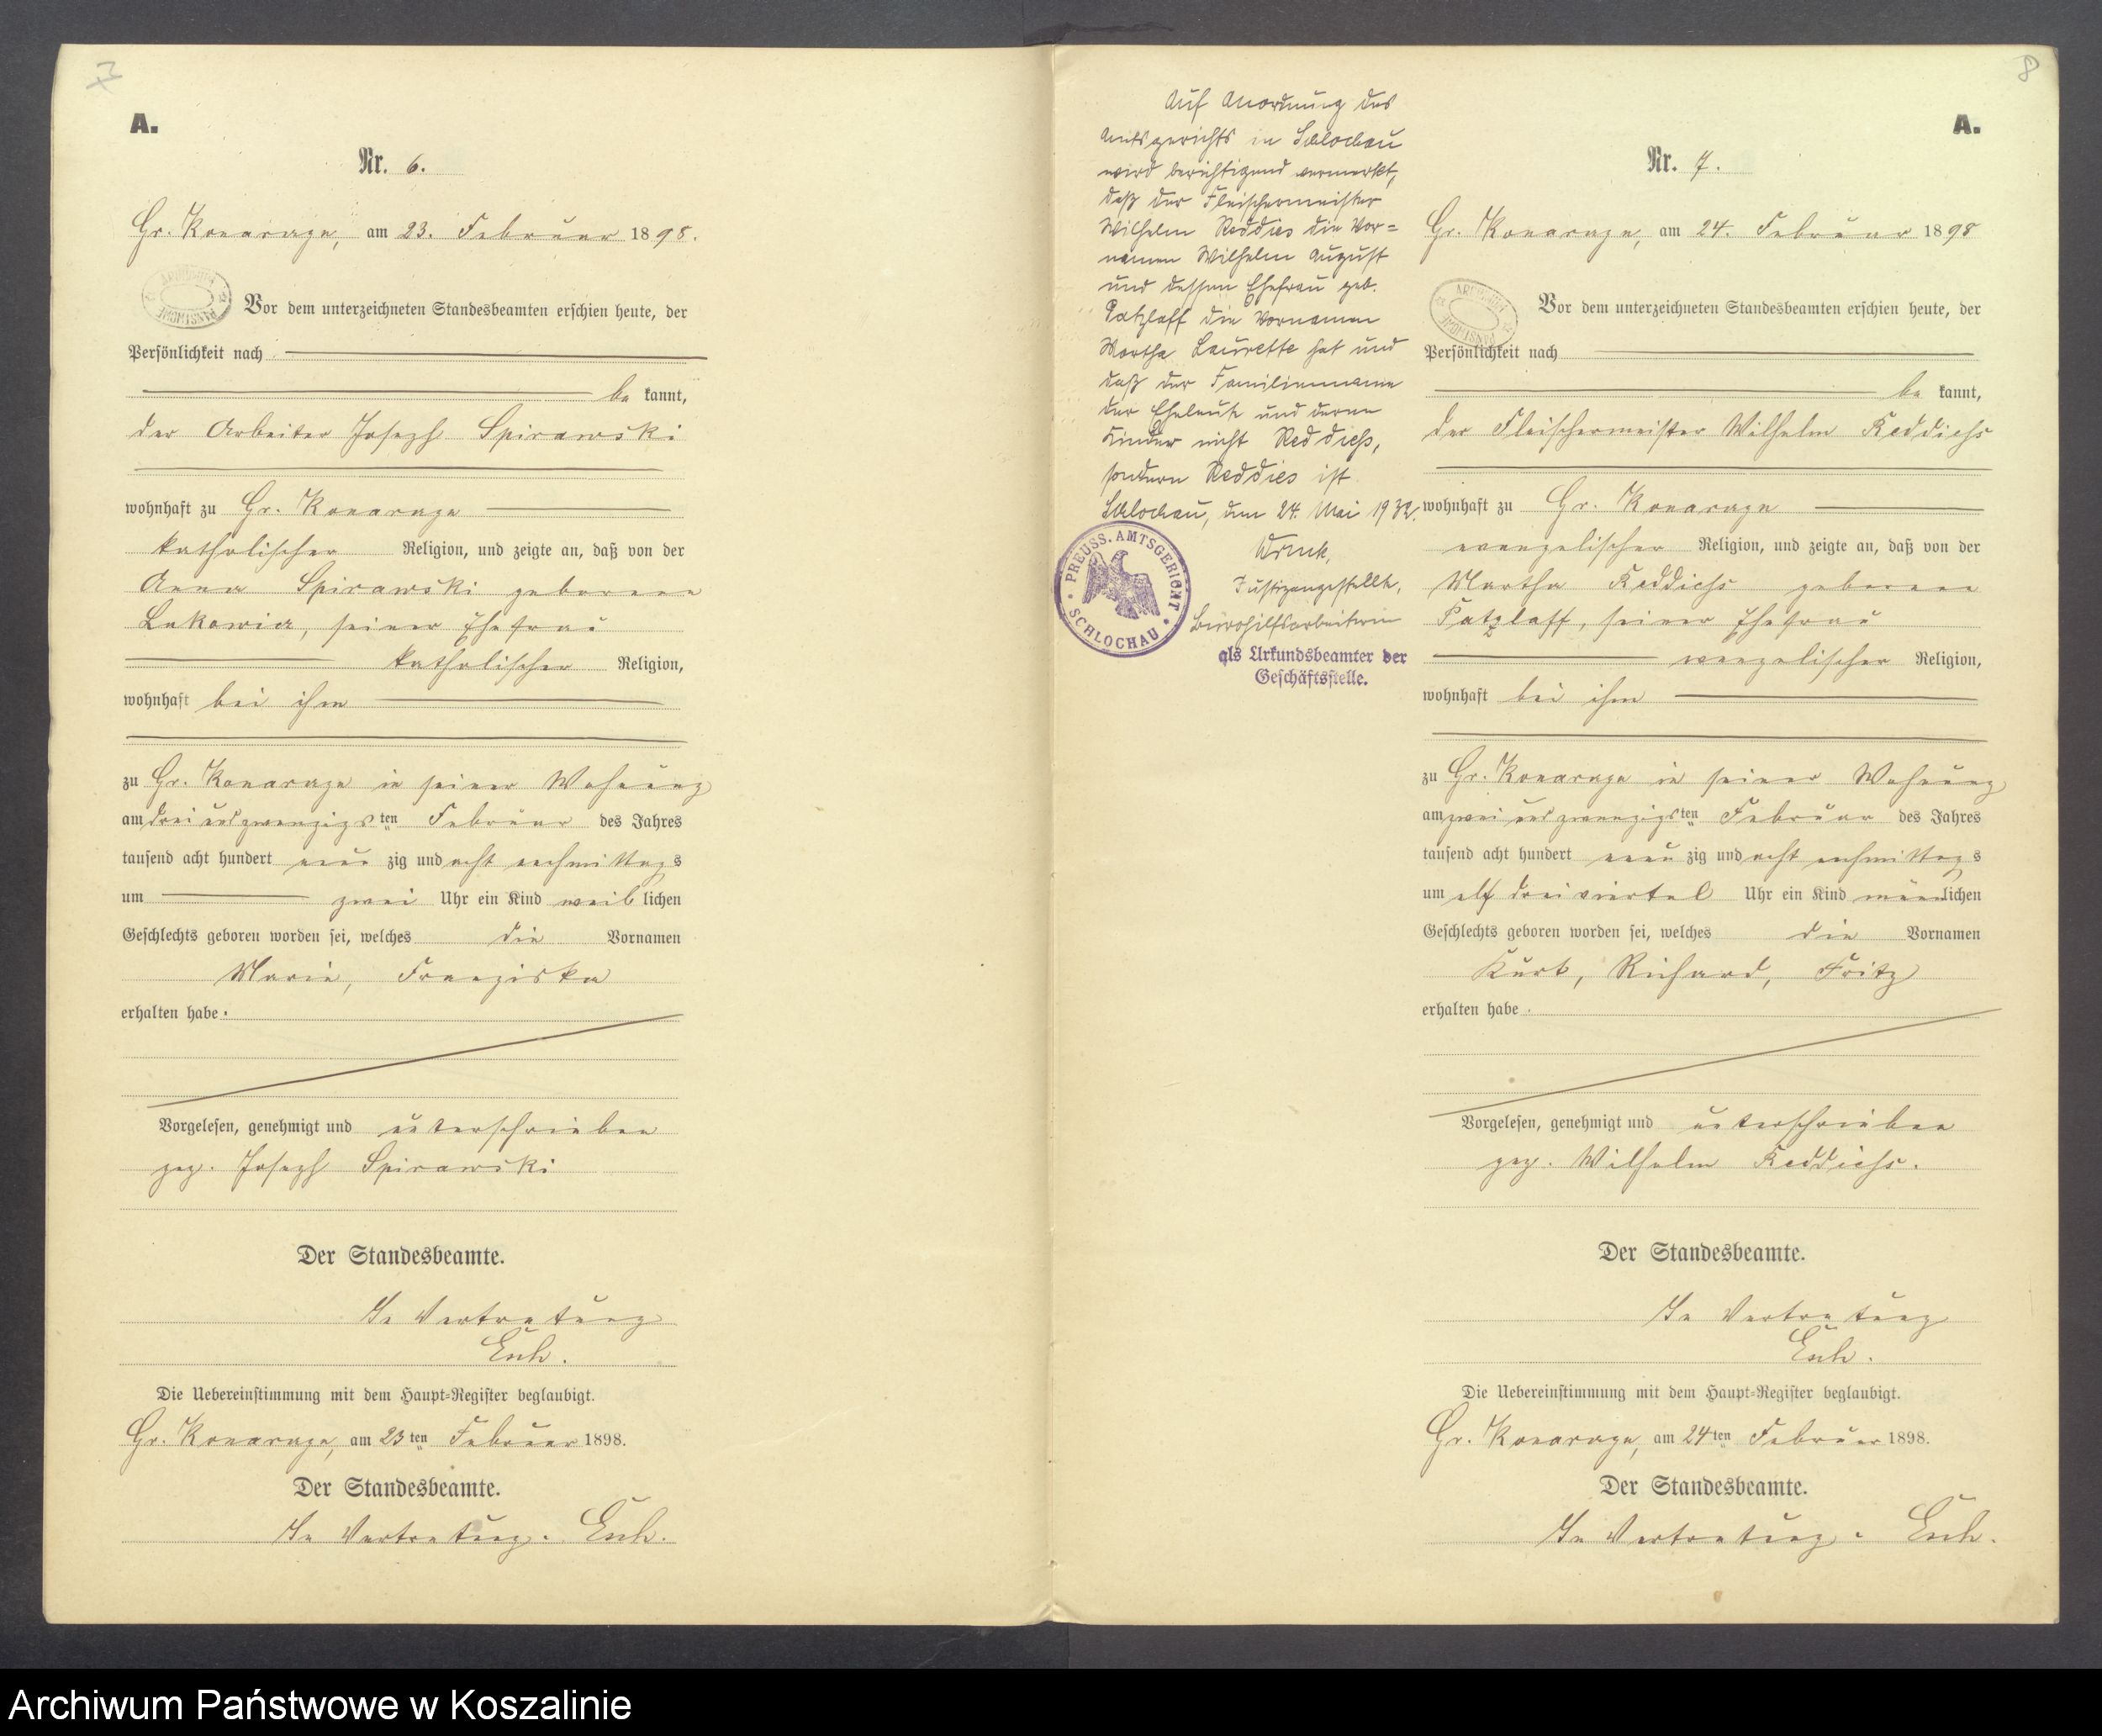 7
A.
Nr. 6.
Gr. Konarzyn, am 23. Februar 1898.
Vor dem unterzeichneten Standesbeamten erschien heute, der
Persönlichkeit nach
be kannt,
der Arbeiter Joseph Spirawski
wohnhaft zu Gr. Konarzyn
katholischer Religion, und zeigte an, daß von der
Anna Spirawski geborene
Lukowicz, seiner Ehefrau
katholischer Religion,
wohnhaft bei ihm
zu Gr. Konarzyn in seiner Wohnung
am drei und zwanzigsten Februar des Jahres
tausend acht hundert neun zig und acht nachmittags
um zwei Uhr ein Kind weib lichen
Geschlechts geboren worden sei, welches die Vornamen
Marie, Franziska
erhalten habe.
Vorgelesen, genehmigt und unterschrieben
gez. Joseph Spirawski
Der Standesbeamte.
In Vertretung
Die Uebereinstimmung mit dem Haupt-Register beglaubigt.
Gr. Konarzyn, am 23ten Februar 1898.
Der Standesbeamte.
In Vertretung.
Auf Anordnung des
Amtsgerichts in Schlochau
wird berichtigend vermerkt,
daß der Fleischermeister
Wilhelm Reddies die Vor=
namen Wilhelm August
und dessen Ehefrau geb.
Patzlaff die Vornamen
Martha Laurette hat und
daß der Familienname
der Eheleute und deren
Kinder nicht Reddiehs,
sondern Reddies ist.
Schlochau, den 24. Mai 1932.
Justizangestellte,
Bürohilfsarbeiterin
als Urkundsbeamter der
Geschäftsstelle.
PREUSS. AMTSGERICHT
SCHLOCHAU
8
A.
Nr. 7.
Gr. Konarzyn, am 24. Februar 1898
Vor dem unterzeichneten Standesbeamten erschien heute, der
Persönlichkeit nach
be kannt,
der Fleischermeister Wilhelm Reddiehs
wohnhaft zu Gr. Konarzyn
evangelischer Religion, und zeigte an, daß von der
Martha Reddiehs geborene
Patzlaff, seiner Ehefrau
evangelischer Religion,
wohnhaft bei ihm
zu Gr. Konarzyn in seiner Wohnung
am zwei und zwanzigsten Februar des Jahres
tausend acht hundert neun zig und acht nachmittags
um elf dreiviertel Uhr ein Kind männlichen
Geschlechts geboren worden sei, welches die Vornamen
Kurt, Richard, Fritz
erhalten habe.
Vorgelesen, genehmigt und unterschrieben
gez. Wilhelm Reddiehs.
Der Standesbeamte.
In Vertretung
Die Uebereinstimmung mit dem Haupt-Register beglaubigt.
Gr. Konarzyn, am 24ten Februar 1898.
Der Standesbeamte.
In Vertretung.
Archiwum Państwowe w Koszalinie